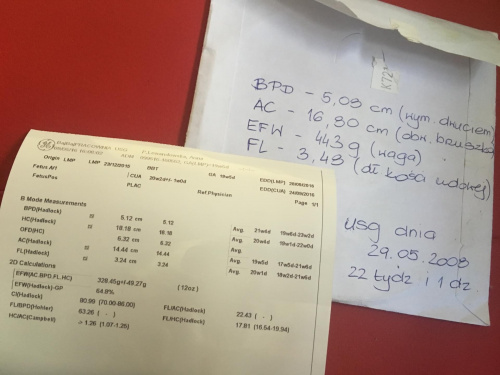 K72
BPD - 5,09 cm (wym. dwuciem
AC - 16,80 cm (obw. brzuszka
EFW - 443g (waga)
FL - 3,48 (dł. kośa udowej)
USG dnia
29.05.2008
22 tydz i 1 dz.
GE
Origin LMP LMP
GA 19w5d
Fetus A/1 CUA 20w2d+/-1w0d
FetusPos PLAC Ref.Physician Page 1/1
B Mode Measurements
BPD(Hadlock) 5.12 cm 5.12 Avg. 21w4d 19w6d-23w2d
HC(Hadlock) 18.18 18.18 Avg. 20w4d 19w1d-22w0d
OFD(HC) 6.32 cm 6.32
AC(Hadlock) 14.44 cm 14.44 Avg. 19w5d 17w5d-21w6d
FL(Hadlock) 3.24 cm 3.24 Avg. 20w1d 18w2d-21w6d
2D Calculations
EFW(AC,BPD,FL,HC) (12oz)
EFW(Hadlock)-GP 54.8%
CI(Hadlock) (70.00-86.00) FL/AC(Hadlock) 22.43 ( - )
FL/BPD(Hohler) 63.26 ( - ) FL/HC(Hadlock) 17.81 (16.54-19.94)
HC/AC(Campbell) 1.26 (1.07-1.25)